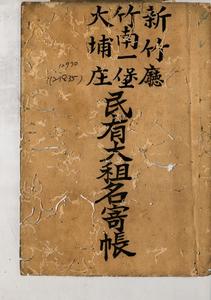 新竹廳
竹南一堡
大埔庄
民有大租名寄帳
12970
(12835)